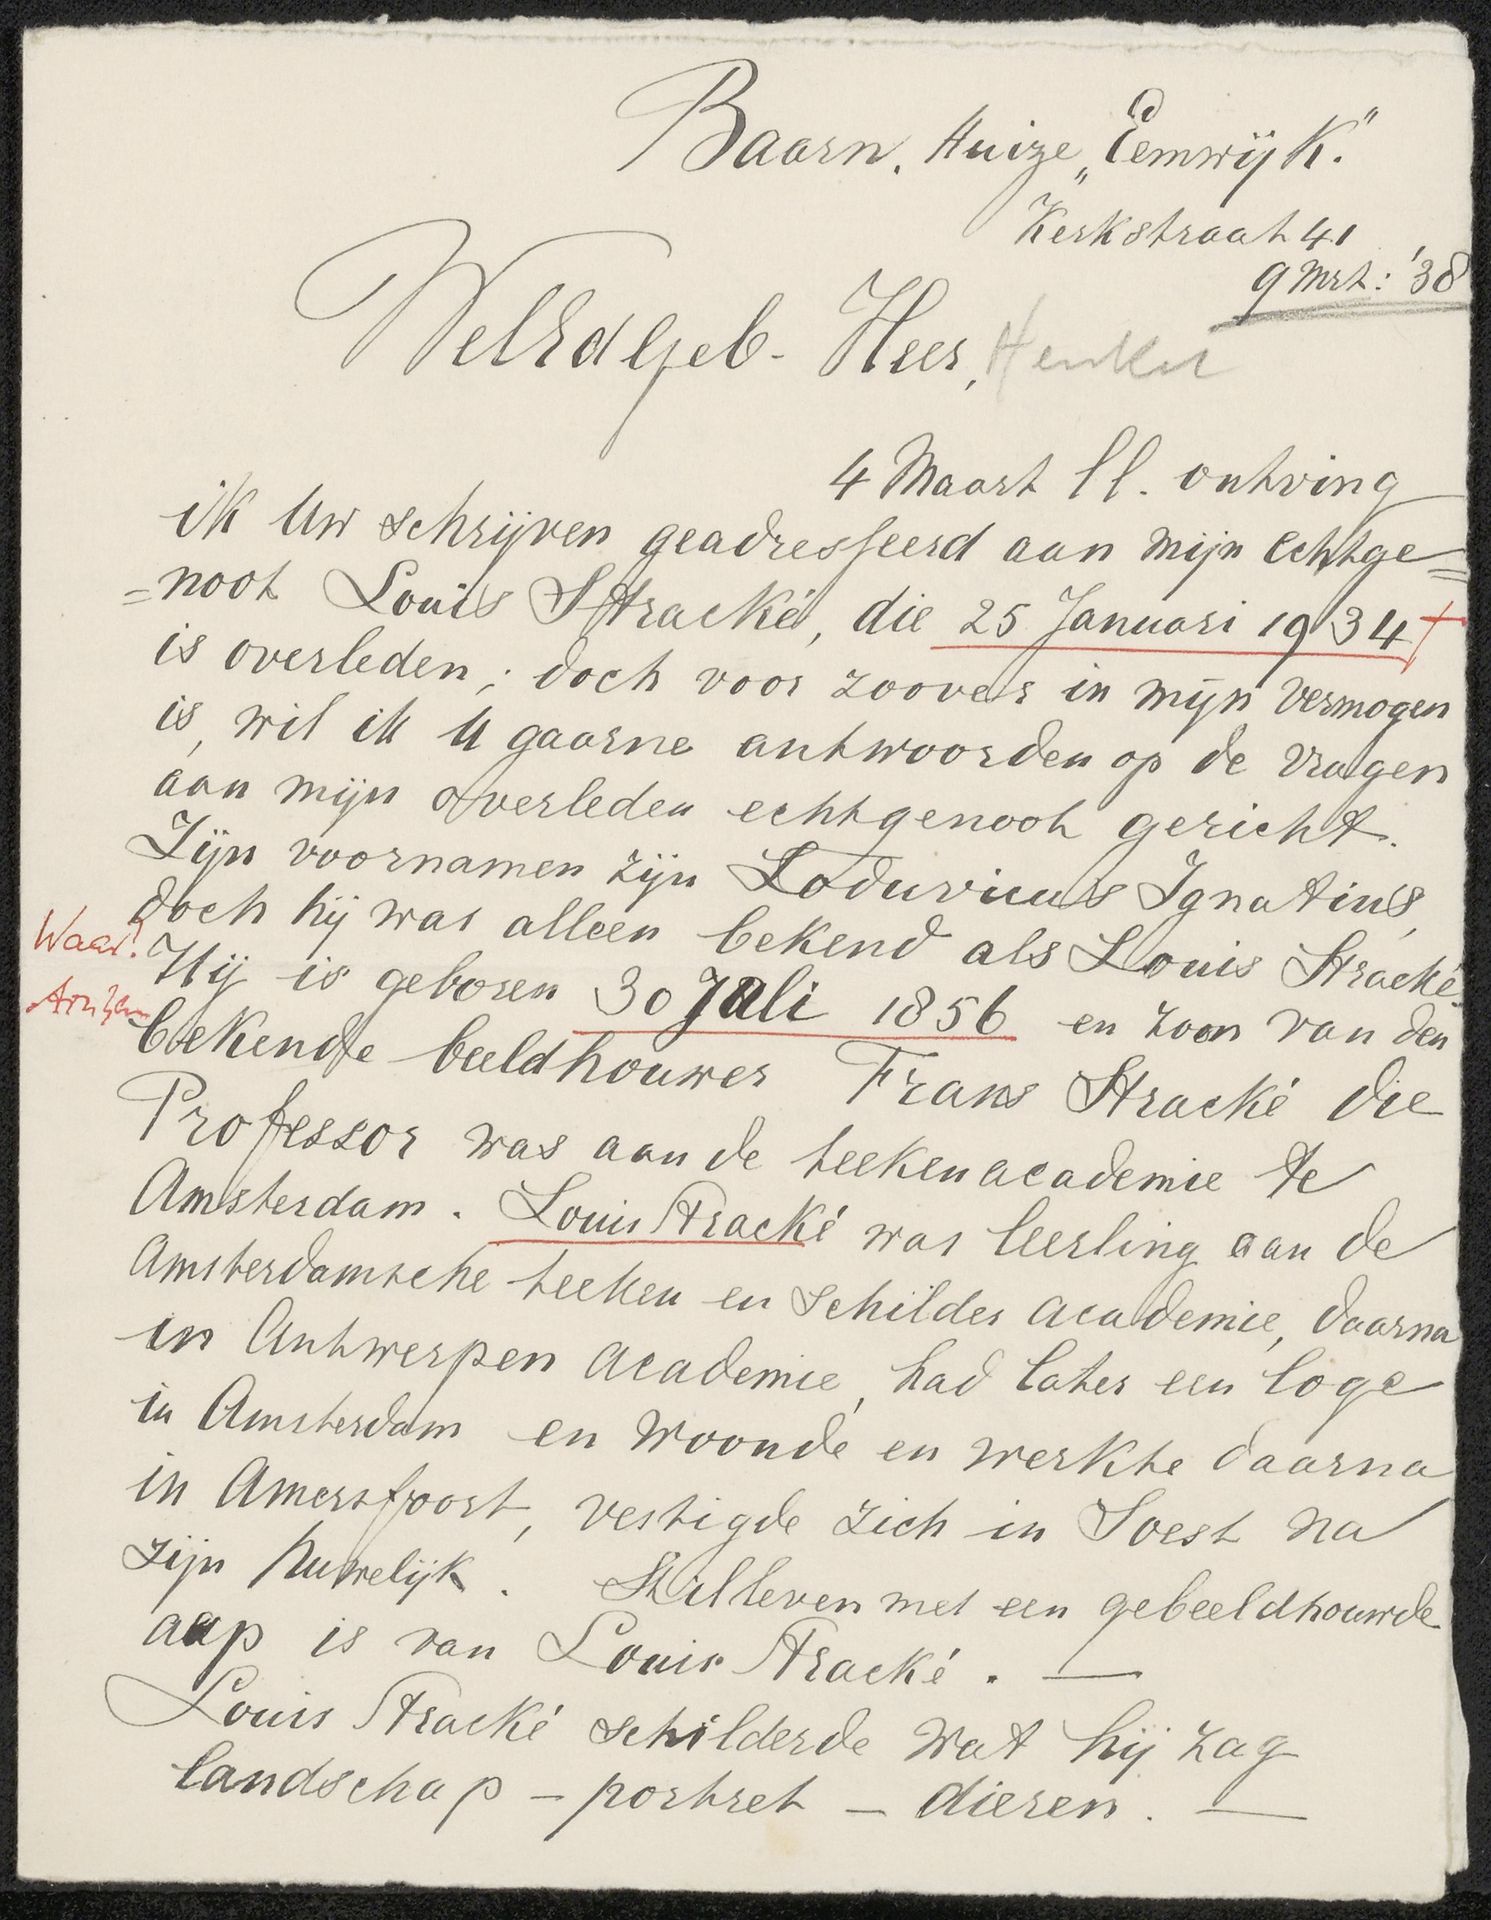 Baarn, Huize „Eemwijk."
Kerkstraat 41
9 Mrt: '38
WelEdlgeb- Heer, Henkel
4 Maart ll. ontving
ik Uw schrijven geadresseerd aan mijn echtge=
=noot Louis Stracké, die 25 Januari 1934 †
is overleden; doch voor zoover in mijn vermogen
is, wil ik U gaarne antwoorden op de vragen
aan mijn overleden echtgenoot gericht.
Zijn voornamen zijn Loduvicus Ignatius,
doch hij was alleen bekend als Louis Stracké.
Waar?
Hij is geboren 30 Juli 1856 en zoon van den
Arnhem
bekende beeldhouwer Frans Stracké die
Professor was aan de teekenacademie te
Amsterdam. Louis Stracké was leerling aan de
Amsterdamsche teeken en schilder academie, daarna
in Antwerpen academie, had later een loge
in Amsterdam en woonde en werkte daarna
in Amersfoort, vestigde zich in Soest na
zijn huwelijk. Stilleven met een gebeeldhouwde
aap is van Louis Stracké. —
Louis Stracké schilderde wat hij zag
landschap – portret – dieren. —